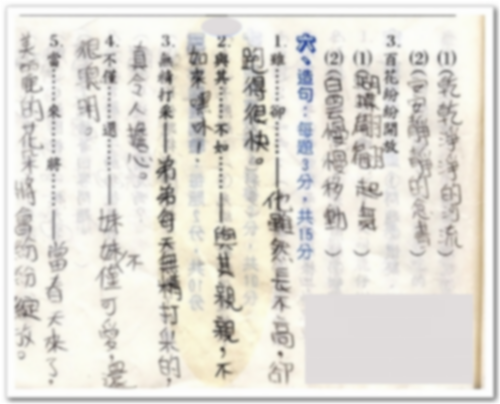 (1)(乾乾淨淨的河流)
(2)(安安靜靜的)
3.百花紛紛開放
(1)(起)
(2)(白雲慢慢移動)
六、造句:每題3分,共15分
1.雖……卻……——他雖然長不高,卻
跑得很快。
2.與其……不如……——與其親親,不
如來!
3.無精打采——弟弟每天無精打采的,
真令人擔心。
4.不僅……還……——妹妹不僅可愛,還
很聰明。
5.當……來……將……——當春天來了,
美麗的花朵將會紛紛綻放。